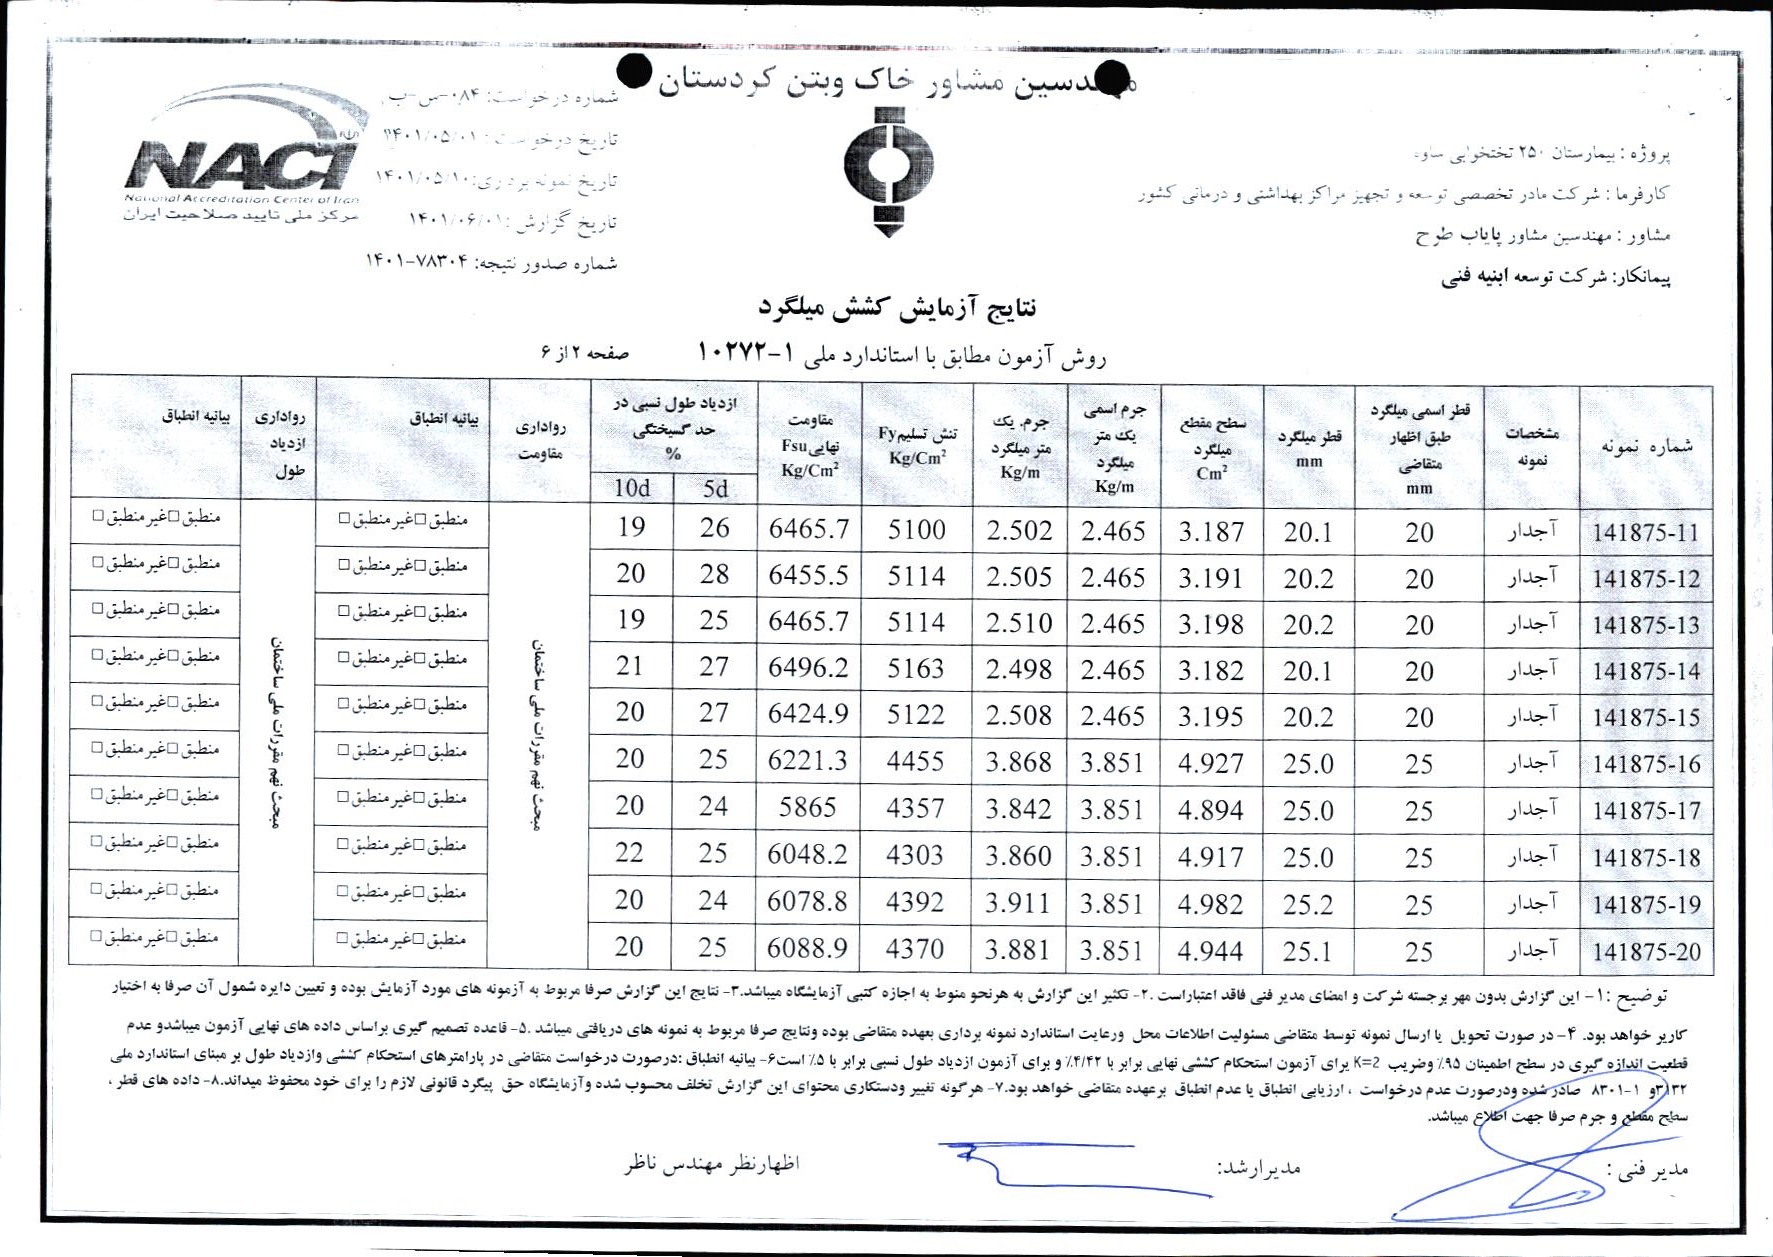 مهندسین مشاور خاک وبتن کردستان
پروژه : بیمارستان ۲۵۰ تختخوابی ساوه
کارفرما : شرکت مادر تخصصی توسعه و تجهیز مراکز بهداشتی و درمانی کشور
مشاور : مهندسین مشاور پایاب طرح
پیمانکار: شرکت توسعه ابنیه فنی
شماره درخواست: ۰۸۴-س-ب
تاریخ درخواست: ۱۴۰۱/۰۵/۰۱
تاریخ نمونه برداری: ۱۴۰۱/۰۵/۱۰
تاریخ گزارش: ۱۴۰۱/۰۶/۰۱
شماره صدور نتیجه: ۷۸۳۰۴-۱۴۰۱
NACI
National Accreditation Center of Iran
مرکز ملی تایید صلاحیت ایران
نتایج آزمایش کشش میلگرد
روش آزمون مطابق با استاندارد ملی ۱-۱۰۲۷۲ صفحه ۲ از ۶
شماره نمونه
مشخصات نمونه
قطر اسمی میلگرد طبق اظهار متقاضی mm
قطر میلگرد mm
سطح مقطع میلگرد Cm²
جرم اسمی یک متر میلگرد Kg/m
جرم. یک متر میلگرد Kg/m
تنش تسلیم Fy Kg/Cm²
مقاومت نهایی Fsu Kg/Cm²
ازدیاد طول نسبی در حد گسیختگی %
5d 10d
رواداری مقاومت
بیانیه انطباق
رواداری ازدیاد طول
بیانیه انطباق
141875-11 آجدار 20 20.1 3.187 2.465 2.502 5100 6465.7 26 19 منطبق□غیرمنطبق□ منطبق□غیرمنطبق□
141875-12 آجدار 20 20.2 3.191 2.465 2.505 5114 6455.5 28 20 منطبق□غیرمنطبق□ منطبق□غیرمنطبق□
141875-13 آجدار 20 20.2 3.198 2.465 2.510 5114 6465.7 25 19 منطبق□غیرمنطبق□ منطبق□غیرمنطبق□
141875-14 آجدار 20 20.1 3.182 2.465 2.498 5163 6496.2 27 21 منطبق□غیرمنطبق□ منطبق□غیرمنطبق□
141875-15 آجدار 20 20.2 3.195 2.465 2.508 5122 6424.9 27 20 منطبق□غیرمنطبق□ منطبق□غیرمنطبق□
141875-16 آجدار 25 25.0 4.927 3.851 3.868 4455 6221.3 25 20 منطبق□غیرمنطبق□ منطبق□غیرمنطبق□
141875-17 آجدار 25 25.0 4.894 3.851 3.842 4357 5865 24 20 منطبق□غیرمنطبق□ منطبق□غیرمنطبق□
141875-18 آجدار 25 25.0 4.917 3.851 3.860 4303 6048.2 25 22 منطبق□غیرمنطبق□ منطبق□غیرمنطبق□
141875-19 آجدار 25 25.2 4.982 3.851 3.911 4392 6078.8 24 20 منطبق□غیرمنطبق□ منطبق□غیرمنطبق□
141875-20 آجدار 25 25.1 4.944 3.851 3.881 4370 6088.9 25 20 منطبق□غیرمنطبق□ منطبق□غیرمنطبق□
مبحث نهم مقررات ملی ساختمان
مبحث نهم مقررات ملی ساختمان
توضیح :۱- این گزارش بدون مهر برجسته شرکت و امضای مدیر فنی فاقد اعتباراست .۲- تکثیر این گزارش به هرنحو منوط به اجازه کتبی آزمایشگاه میباشد.۳- نتایج این گزارش صرفا مربوط به آزمونه های مورد آزمایش بوده و تعیین دایره شمول آن صرفا به اختیار
کاربر خواهد بود. ۴- در صورت تحویل یا ارسال نمونه توسط متقاضی مسئولیت اطلاعات محل ورعایت استاندارد نمونه برداری بعهده متقاضی بوده ونتایج صرفا مربوط به نمونه های دریافتی میباشد .۵- قاعده تصمیم گیری براساس داده های نهایی آزمون میباشدو عدم
قطعیت اندازه گیری در سطح اطمینان ۹۵٪ وضریب K=2 برای آزمون استحکام کششی نهایی برابر با ۴/۴۲٪ و برای آزمون ازدیاد طول نسبی برابر با ۵٪ است۶- بیانیه انطباق :درصورت درخواست متقاضی در پارامترهای استحکام کششی وازدیاد طول بر مبنای استاندارد ملی
۳۱۳۲و ۱-۸۳۰۱ صادر شده ودرصورت عدم درخواست ، ارزیابی انطباق یا عدم انطباق برعهده متقاضی خواهد بود.۷- هرگونه تغییر ودستکاری محتوای این گزارش تخلف محسوب شده وآزمایشگاه حق پیگرد قانونی لازم را برای خود محفوظ میداند.۸- داده های قطر ،
سطح مقطع و جرم صرفا جهت اطلاع میباشد.
مدیر فنی : مدیرارشد: اظهارنظر مهندس ناظر